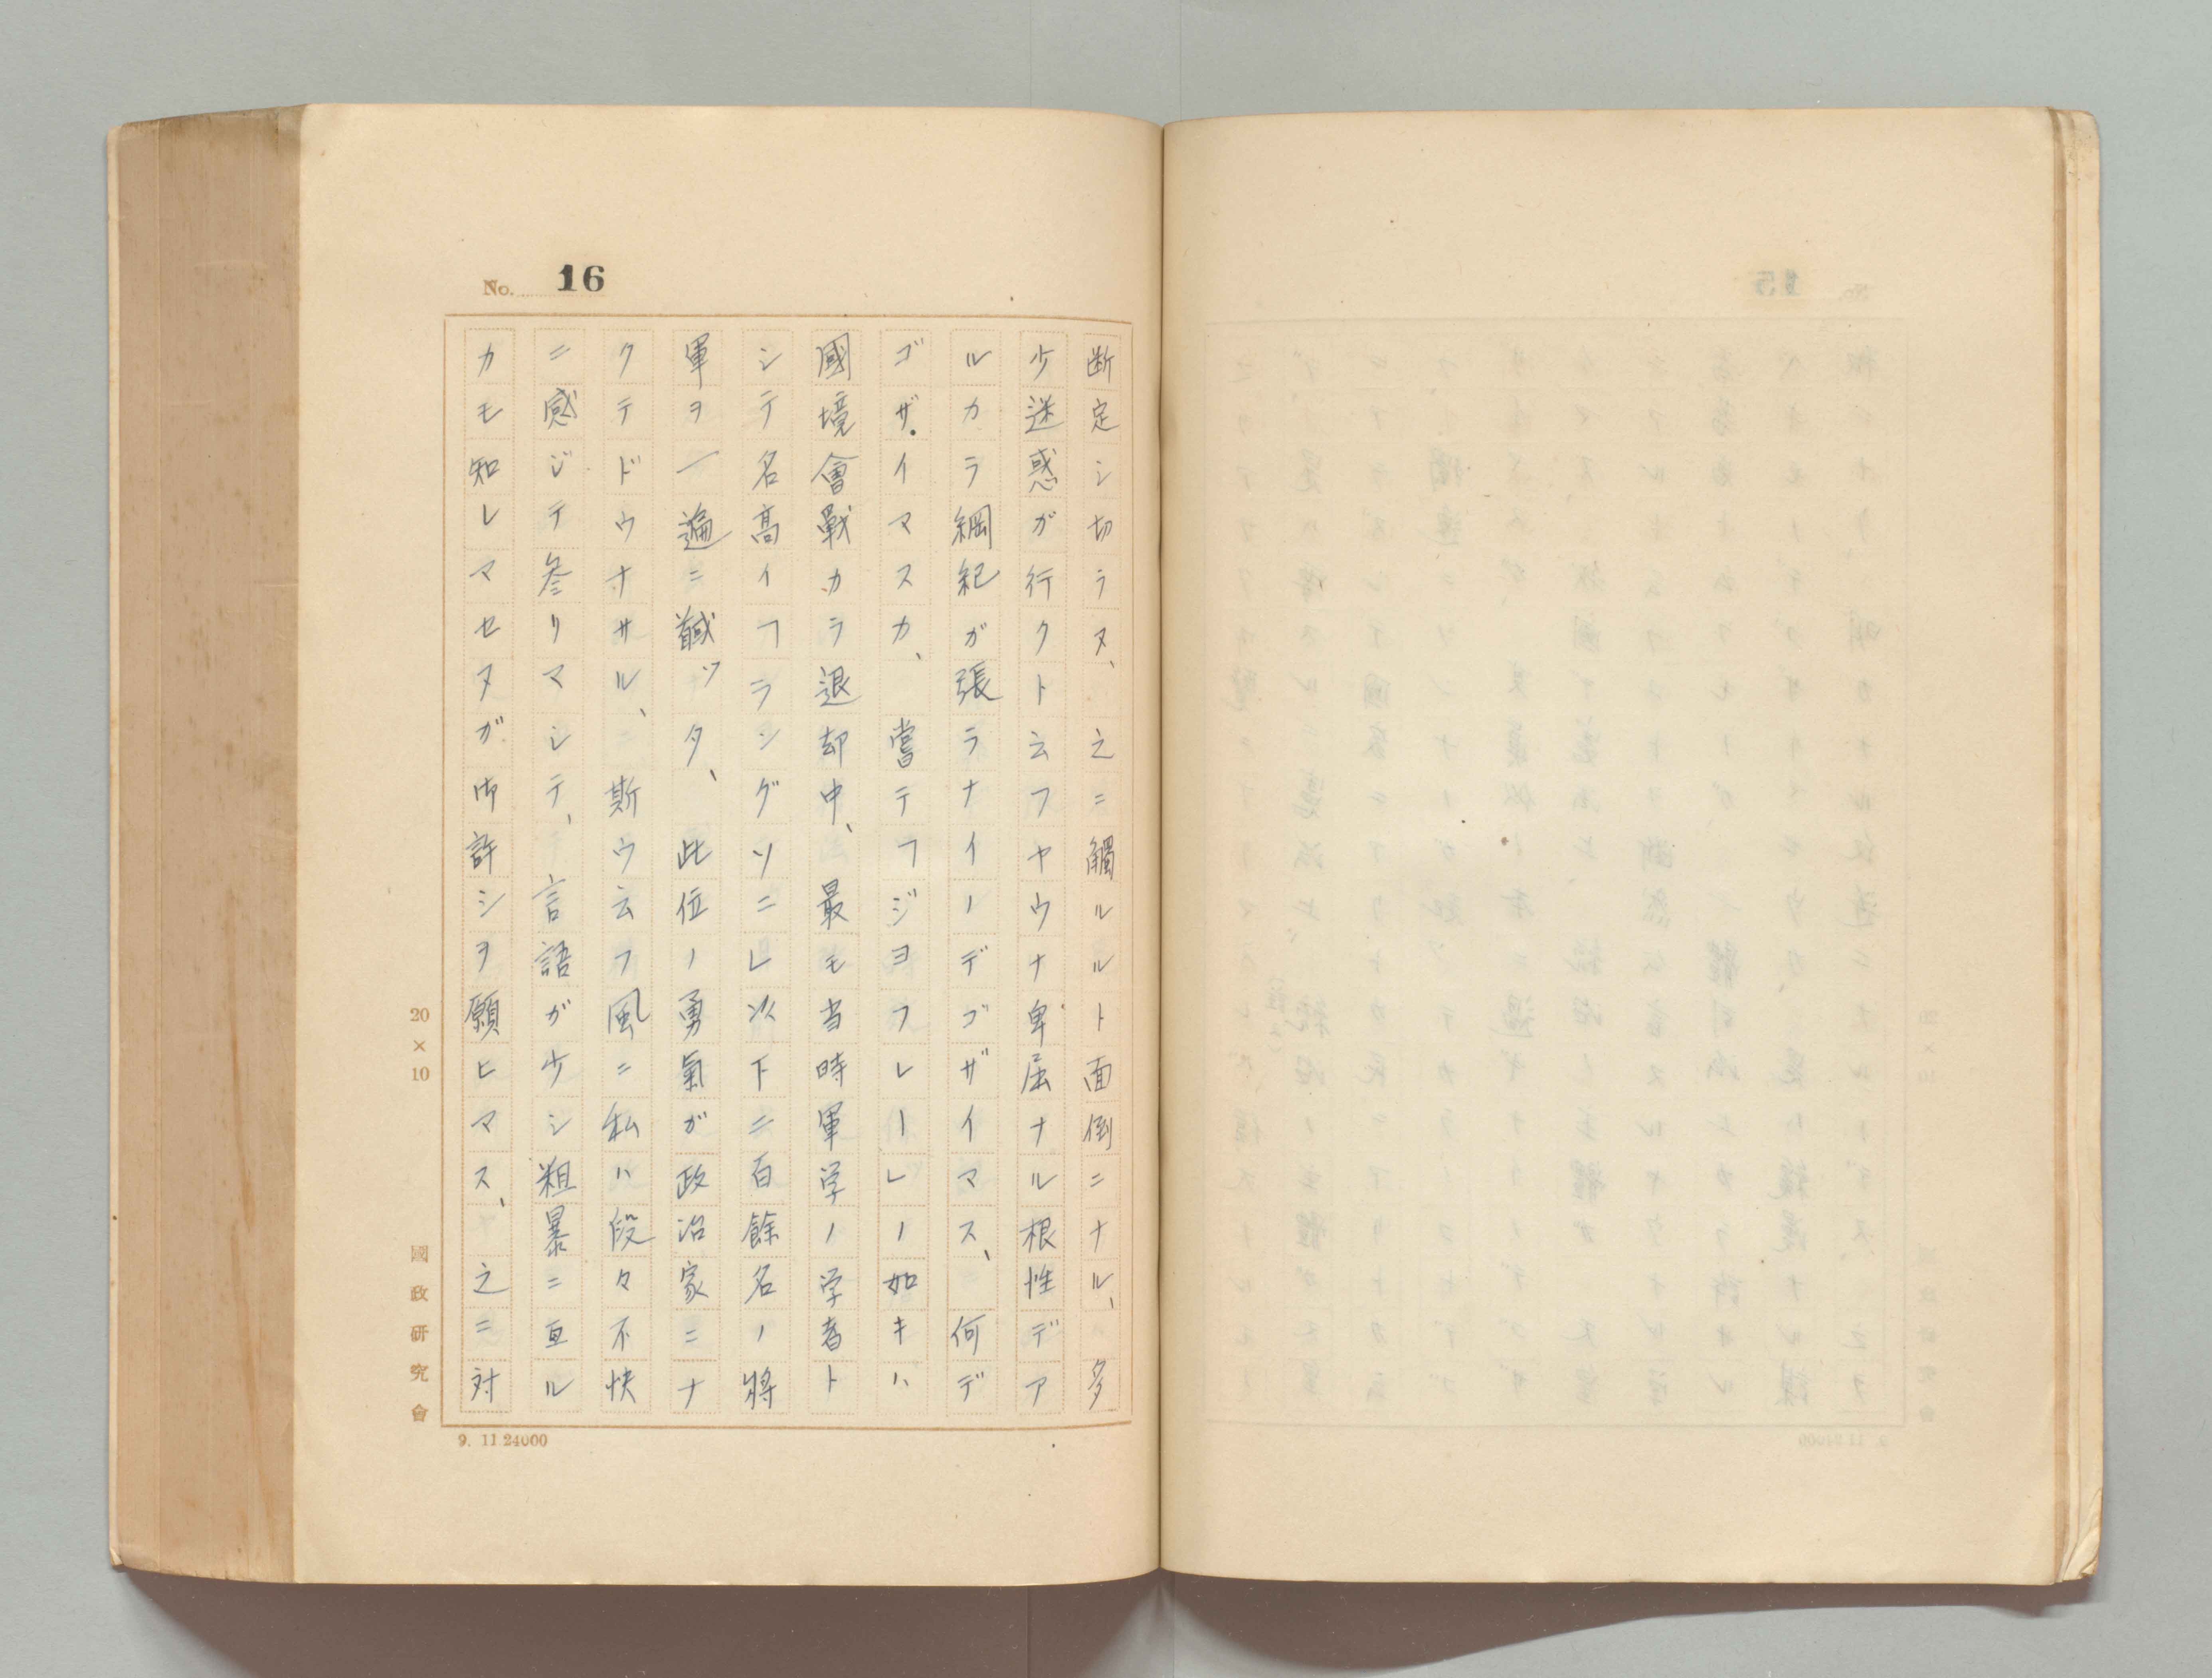 No. 16
断定シ切ラヌ、之ニ觸ルルト面倒ニナル、多
少迷惑ガ行クト云フヤウナ卑屈ナル根性デア
ルカラ綱紀ガ張ラナイノデゴザイマス、何デ
ゴザイマスカ、嘗テフジヨフレーレノ如キハ
國境會戰カラ退却中、最モ当時軍学ノ学者ト
シテ名高イフランシグソニレ以下ニ百餘名ノ將
軍ヲ一遍ニ馘ツタ、此位ノ勇氣ガ政治家ニナ
クテドウナサル、斯ウ云フ風ニ私ハ段々不快
ニ感ジテ参リマシテ、言語ガ少シ粗暴ニ亙ル
カモ知レマセヌガ御許シヲ願ヒマス、之ニ対
20×10
國政研究會
9. 11 24000